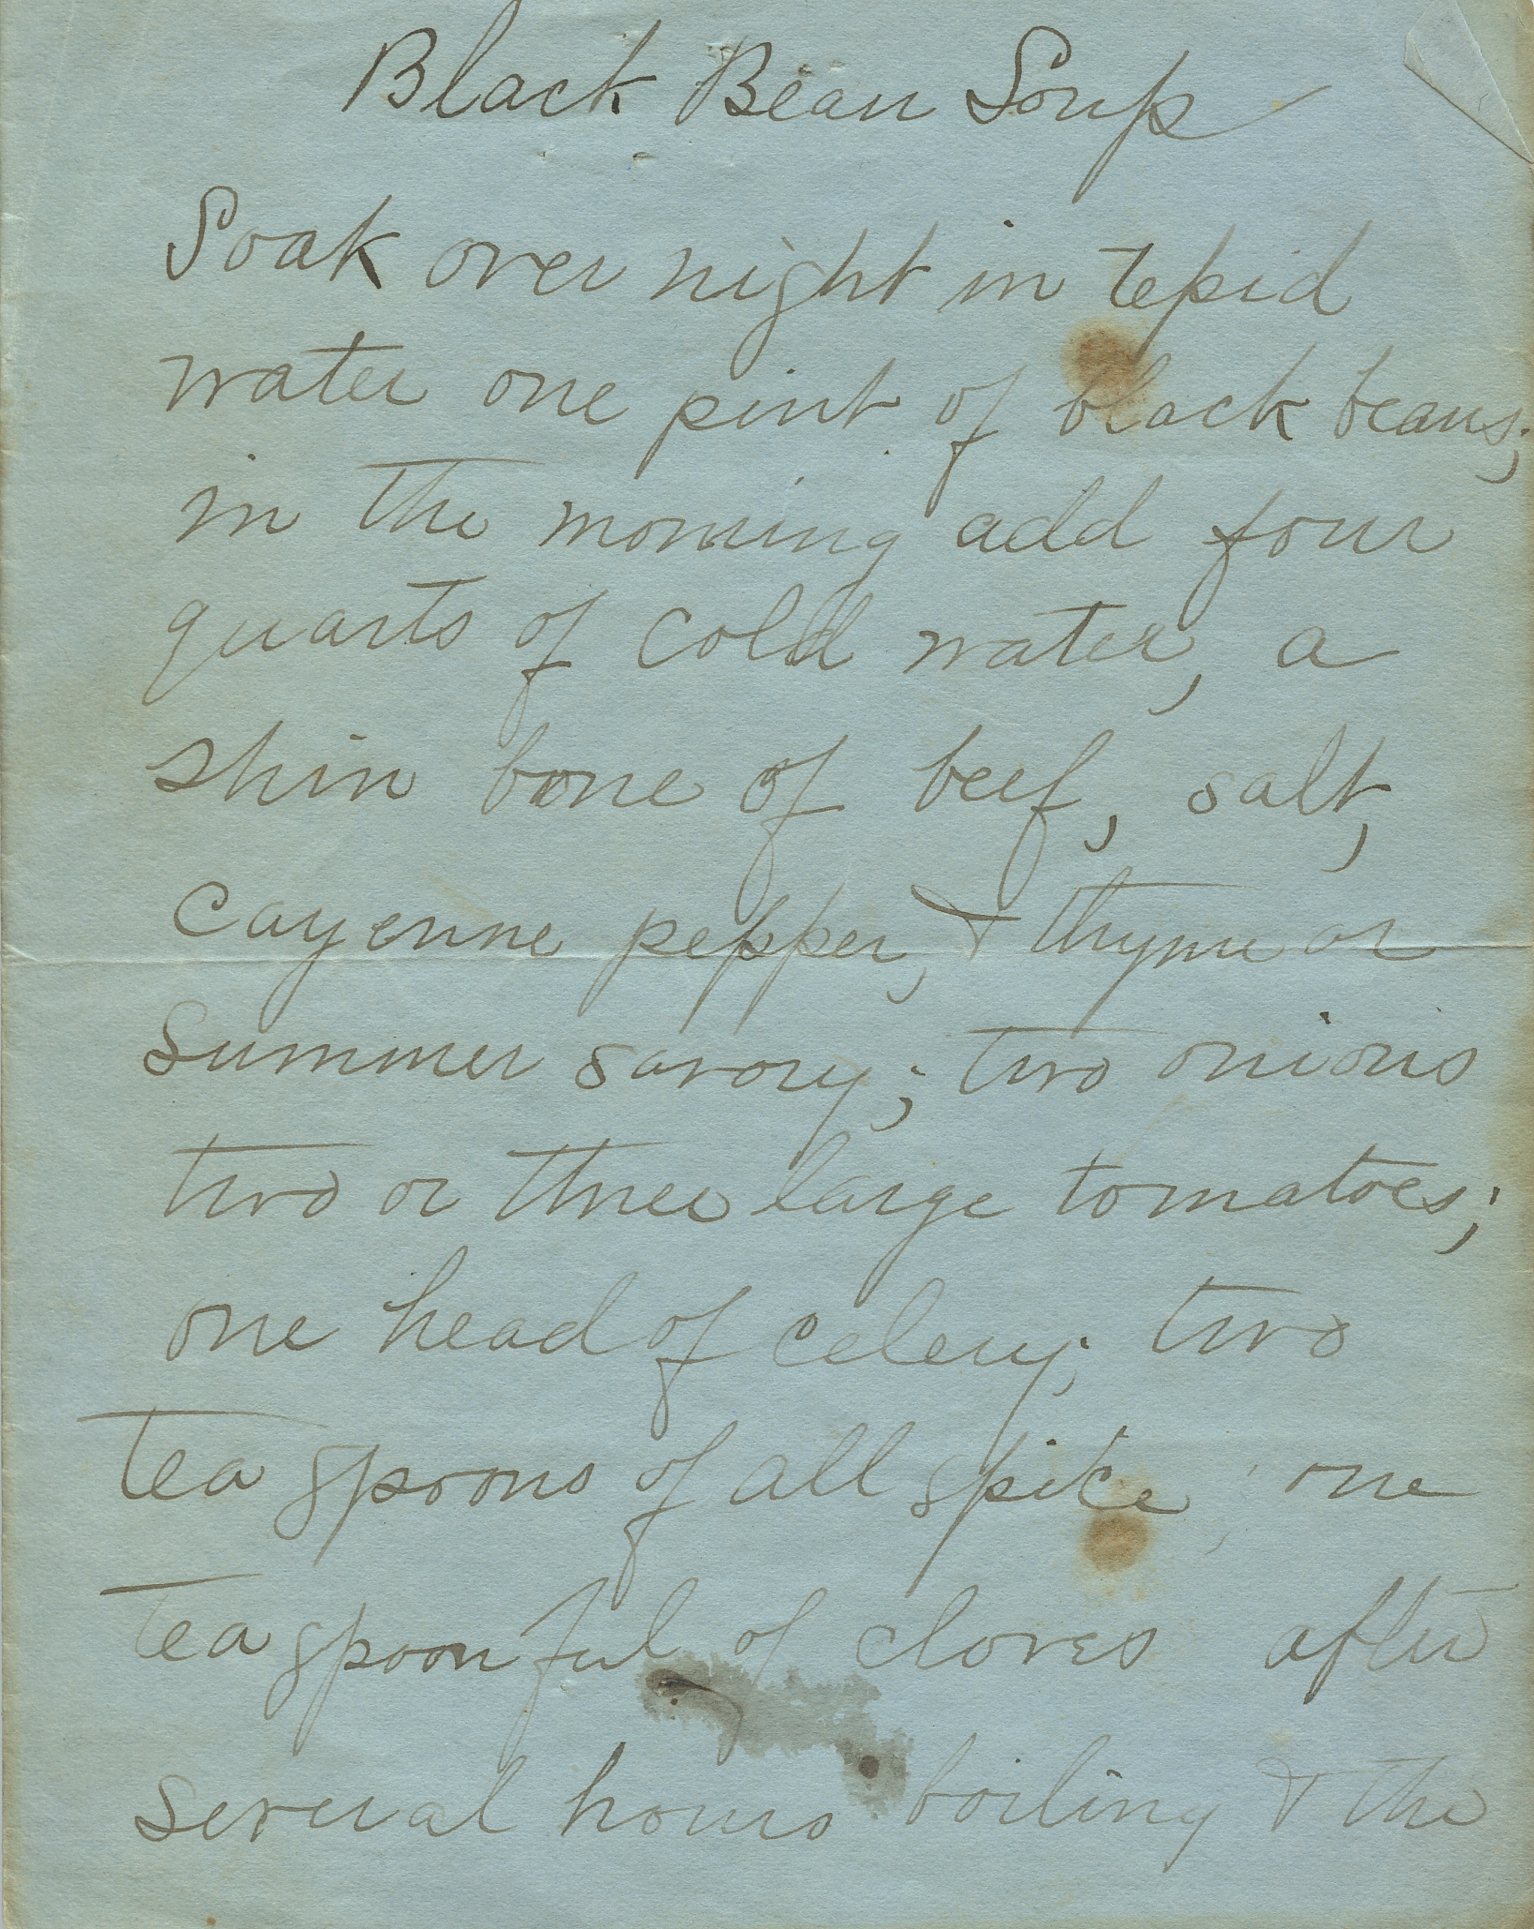 Black Bean Soup
Soak over night in tepid
water one pint of black beans;
in the morning add four
quarts of cold water, a
shin bone of beef, salt,
cayenne pepper, & thyme or
Summer savory; two onions
two or three large tomatoes;
one head of celery; two
tea spoons of all spice; one
tea spoon ful of cloves after
several hours boiling & the